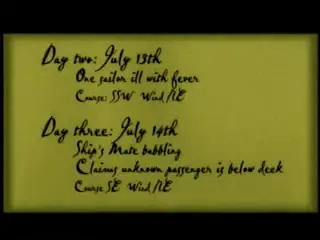 Day two: July 13th
One sailor ill with fever
Course: SSW Wind/NE
Day three: July 14th
Ship's Mate babbling
Claims unknown passenger is below deck
Course SE Wind/NE